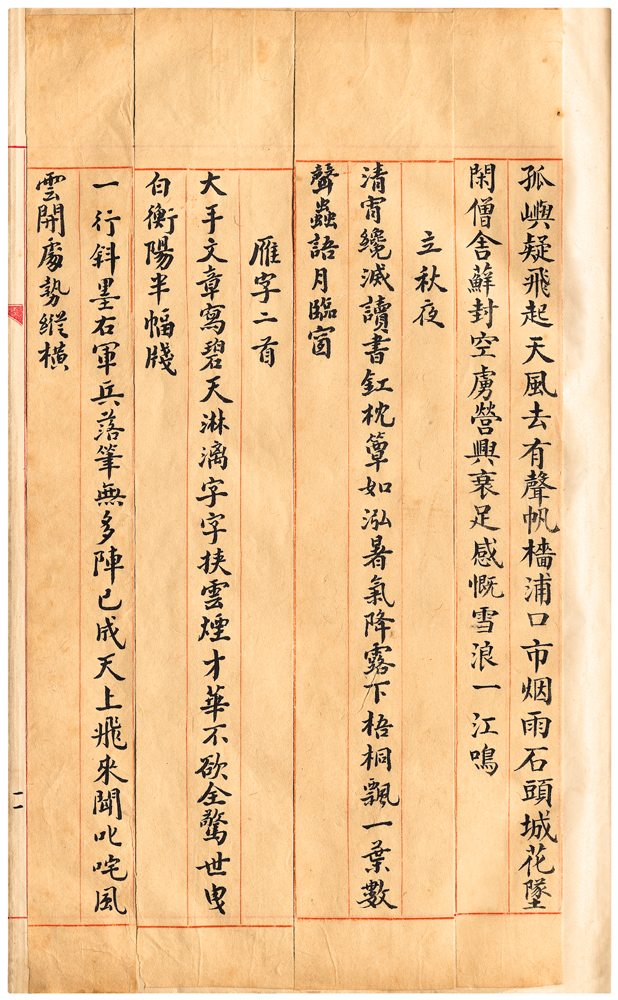 孤嶼疑飛起天風去有聲帆檣浦口市烟雨石頭城花墜
閑僧舍蘚封空虜營興衰足感慨雪浪一江鳴
立秋夜
清宵纔滅讀書釭枕簟如泓暑氣降露下梧桐飄一葉數
聲蟲語月臨窗
雁字二首
大手文章寫碧天淋漓字字挾雲煙才華不欲全驚世曳
白衡陽半幅牋
一行斜墨右軍兵落筆無多陣已成天上飛來聞叱咤風
雲開處勢縱橫
二